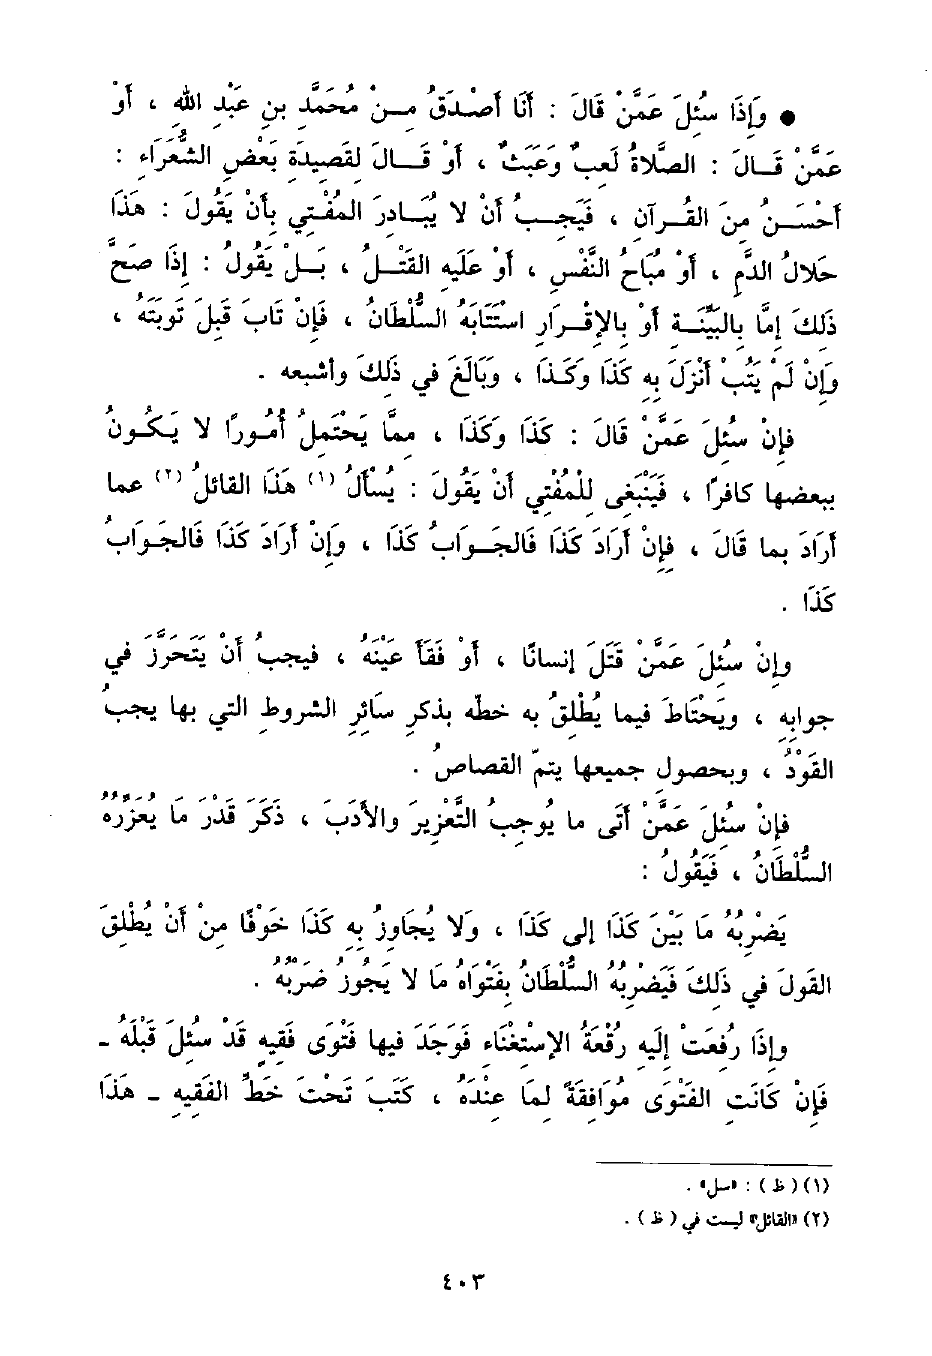 ● وَإِذَا سُئِلَ عَمَّنْ قَالَ : أَنَا أَصْدَقُ مِنْ مُحَمَّدِ بنِ عَبْدِ اللهِ ، أَوْ
عَمَّنْ قَالَ : الصَّلَاةُ لَعِبٌ وَعَبَثٌ ، أَوْ قَالَ لقَصِيدَةِ بَعْضِ الشُّعَرَاءِ :
أَحْسَنُ مِنَ القُرآنِ ، فَيَجِبُ أَنْ لا يُبَادِرَ المُفْتِي بِأَنْ يَقُولَ : هَذَا
حَلالُ الدَّمِ ، أَوْ مُبَاحُ النَّفْسِ ، أَوْ عَلَيهِ القَتْلُ ، بَلْ يَقُولُ : إِذَا صَحَّ
ذَلِكَ إِمَّا بِالبَيِّنَةِ أَوْ بِالإِقْرَارِ اسْتَتَابَهُ السُّلْطَانُ ، فَإِنْ تَابَ قَبِلَ تَوبَتَهُ ،
وَإِنْ لَمْ يَتُبْ أَنْزَلَ بِهِ كَذَا وَكَذَا ، وَبَالَغَ في ذَلِكَ وأشبعه .
فَإِنْ سُئِلَ عَمَّنْ قَالَ : كَذَا وكَذَا ، مِمَّا يَحْتَمِلُ أُمُورًا لا يَكُونُ
ببعضِها كافرًا ، فَيَنْبَغِى لِلْمُفْتِي أَنْ يَقُولَ : يُسأَلُ (١) هَذَا القائلُ (٢) عما
أَرَادَ بما قَالَ ، فإِنْ أَرَادَ كَذَا فَالجَوَابُ كَذَا ، وَإِنْ أَرَادَ كَذَا فَالجَوَابُ
كَذَا .
وإِنْ سُئِلَ عَمَّنْ قَتَلَ إِنسانًا ، أَوْ فَقَأَ عَيْنَهُ ، فيجبُ أَنْ يَتَحَرَّزَ في
جوابِهِ ، ويَحْتَاطَ فيما يُطْلِقُ به خطه بذكرِ سَائِرِ الشروطِ التي بها يجبُ
القَوْدُ ، وبحصولِ جميعِها يتمّ القصاصُ .
فإِنْ سُئِلَ عَمَّنْ أَتَى ما يُوجِبُ التَّعْزِيرَ والأَدَبَ ، ذَكَرَ قَدْرَ مَا يُعَزِّرُهُ
السُّلْطَانُ ، فَيَقُولُ :
يَضْرِبُهُ مَا بَيْنَ كَذَا إلى كَذَا ، وَلا يُجَاوِزُ بِهِ كَذَا خَوْفًا مِنْ أَنْ يُطْلِقَ
القَولَ في ذَلِكَ فَيَضْرِبُهُ السُّلْطَانُ بِفَتْوَاهُ مَا لَا يَجُوزُ ضَرْبُهُ .
وإِذَا رُفِعَتْ إِلَيهِ رُقْعَةُ الاِسْتِفْتَاءِ فَوَجَدَ فيها فَتْوَى فَقِيهٍ قَدْ سُئِلَ قَبْلَهُ ـ
فَإِنْ كَانَتِ الفَتْوَى مُوَافِقَةً لِمَا عِنْدَهُ ، كَتَبَ تَحْتَ خَطِّ الفَقِيهِ ـ هَذَا
(١) ( ظ ) : «سل» .
(٢) «القائل» ليست في ( ظ ) .
٤٠٣